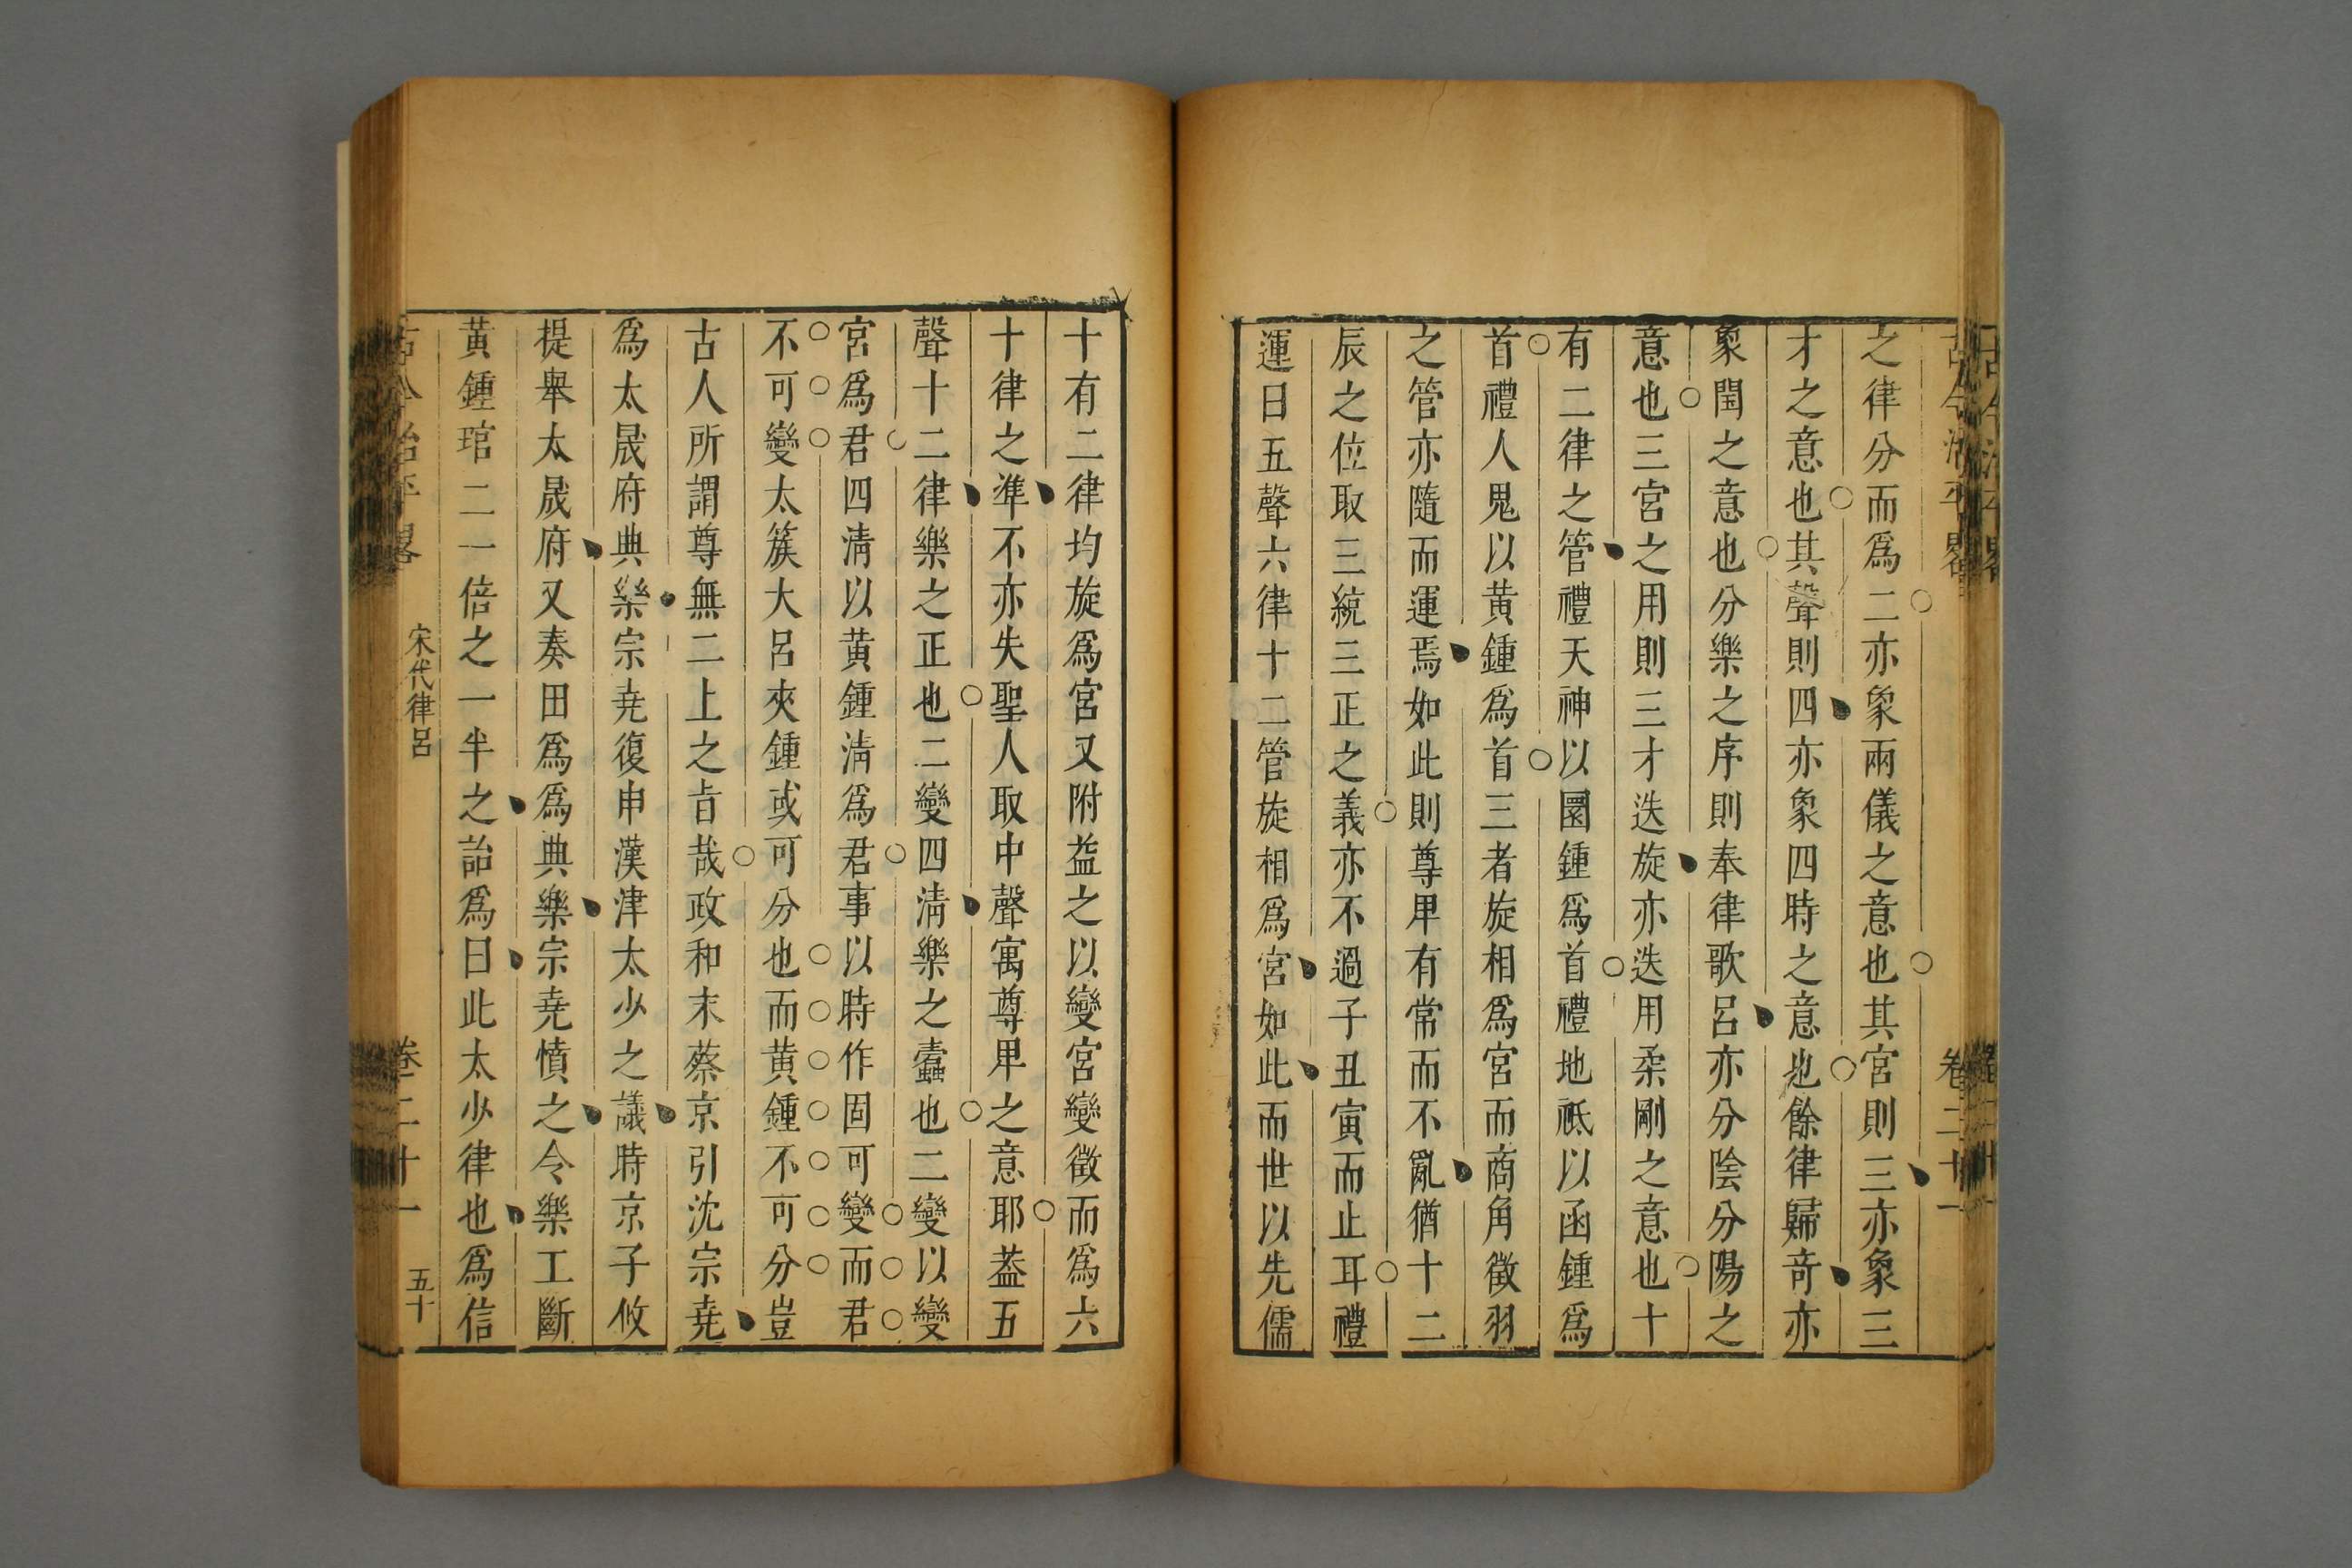 古今治平畧
卷二十一
之律分而爲二亦象兩儀之意也其宮則三亦象三
才之意也其聲則四亦象四時之意也餘律歸奇亦
象閏之意也分樂之序則奉律歌呂亦分陰分陽之
意也三宮之用則三才迭旋亦迭用柔剛之意也十
有二律之管禮天神以圜鍾爲首禮地祗以函鍾爲
首禮人鬼以黃鍾爲首三者旋相爲宮而商角徵羽
之管亦隨而運焉如此則尊卑有常而不亂猶十二
辰之位取三統三正之義亦不過子丑寅而止耳禮
運曰五聲六律十二管旋相爲宮如此而世以先儒
十有二律均旋爲宮又附益之以變宮變徵而爲六
十律之準不亦失聖人取中聲寓尊卑之意耶葢五
聲十二律樂之正也二變四淸樂之蠧也二變以變
宮爲君四淸以黃鍾淸爲君事以時作固可變而君
不可變太簇大呂夾鍾或可分也而黃鍾不可分豈
古人所謂尊無二上之旨哉政和末蔡京引沈宗堯
爲太晟府典樂宗堯復申漢津太少之議時京子攸
提舉太晟府又奏田爲爲典樂宗堯憤之令樂工斷
黃鍾琯二一倍之一半之詒爲曰此太少律也爲信
古今治平畧
宋代律呂
卷二十一
五十